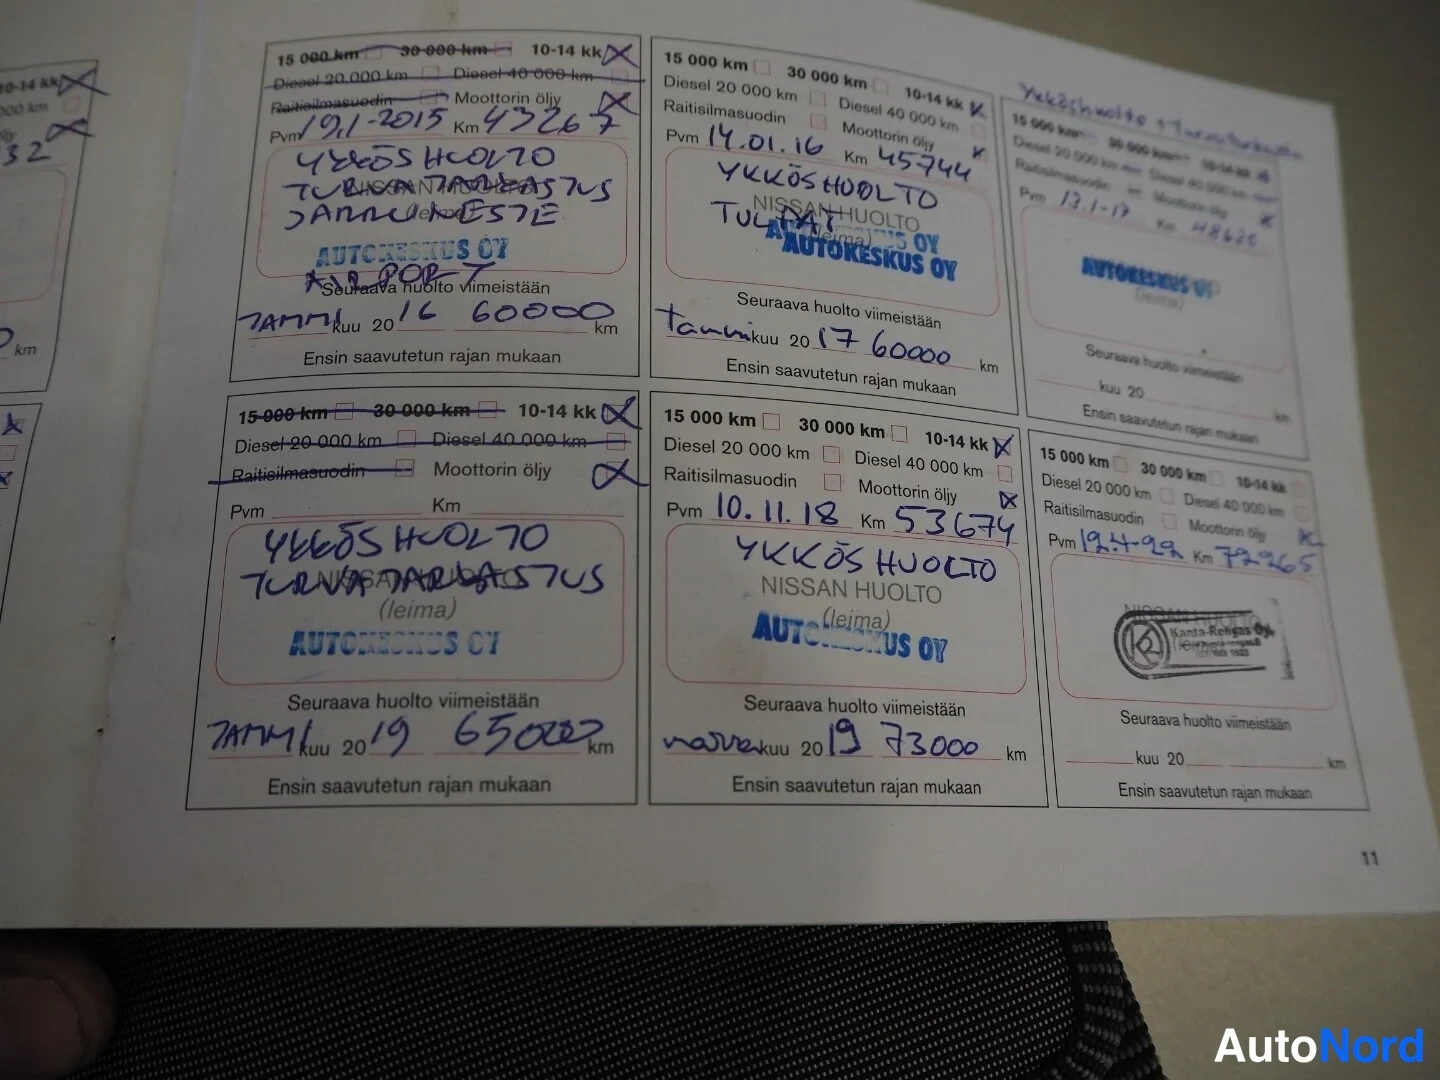 10-14 kk
000 km
32
km
15 000 km 30 000 km 10-14 kk
Diesel 20 000 km Diesel 40 000 km
Raitisilmasuodin Moottorin öljy
Pvm 19.1-2015 Km 43267
YKKÖSHUOLTO
NISSAN HUOLTO
TURVA TARKASTUS
(leima)
JARRUNESTE
AUTOKESKUS OY
AIRPORT
Seuraava huolto viimeistään
TAMMI kuu 20 16 60000 km
Ensin saavutetun rajan mukaan
15 000 km 30 000 km 10-14 kk
Diesel 20 000 km Diesel 40 000 km
Raitisilmasuodin Moottorin öljy
Pvm 14.01.16 Km 45744
YKKÖSHUOLTO
NISSAN HUOLTO
TULPAT
(leima)
AUTOKESKUS OY
AUTOKESKUS OY
Seuraava huolto viimeistään
tammi kuu 20 17 60000 km
Ensin saavutetun rajan mukaan
Ykköshuolto +
15 000 km 30 000 km 10-14 kk
Diesel 20 000 km Diesel 40 000 km
Raitisilmasuodin Moottorin öljy
Pvm 13.1-17 Km
AUTOKESKUS OY
(leima)
Seuraava huolto viimeistään
kuu 20 km
Ensin saavutetun rajan mukaan
15 000 km 30 000 km 10-14 kk
Diesel 20 000 km Diesel 40 000 km
Raitisilmasuodin Moottorin öljy
Pvm Km
YKKÖSHUOLTO
NISSAN HUOLTO
TURVATARKASTUS
(leima)
AUTOKESKUS OY
Seuraava huolto viimeistään
TAMMI kuu 20 19 65000 km
Ensin saavutetun rajan mukaan
15 000 km 30 000 km 10-14 kk
Diesel 20 000 km Diesel 40 000 km
Raitisilmasuodin Moottorin öljy
Pvm 10.11.18 Km 53674
YKKÖSHUOLTO
NISSAN HUOLTO
(leima)
AUTOKESKUS OY
Seuraava huolto viimeistään
marras kuu 20 19 73000 km
Ensin saavutetun rajan mukaan
15 000 km 30 000 km 10-14 kk
Diesel 20 000 km Diesel 40 000 km
Raitisilmasuodin Moottorin öljy
Pvm 12.4-22 Km 72265
NISSAN HUOLTO
KR Kanta-Rengas Oy
Seuraava huolto viimeistään
kuu 20 km
Ensin saavutetun rajan mukaan
11
AutoNord